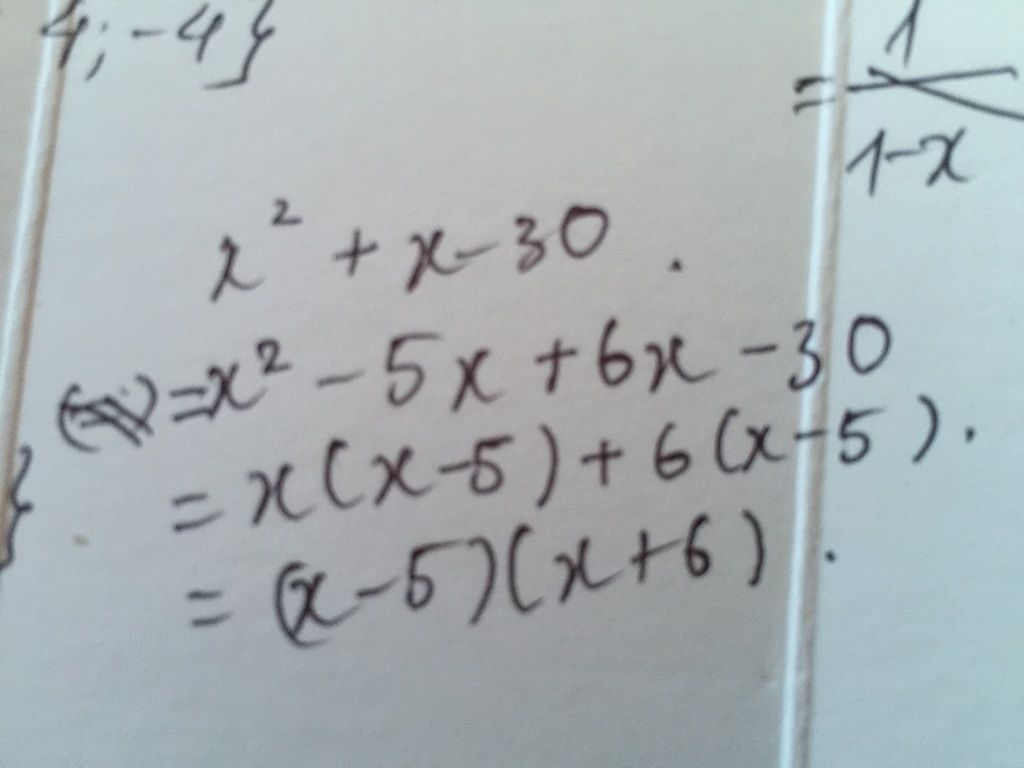 4; -4}
= 1
1-x
x² + x - 30 .
= x² - 5x + 6x - 30
= x(x-5) + 6(x-5).
}
= (x-5)(x+6) .